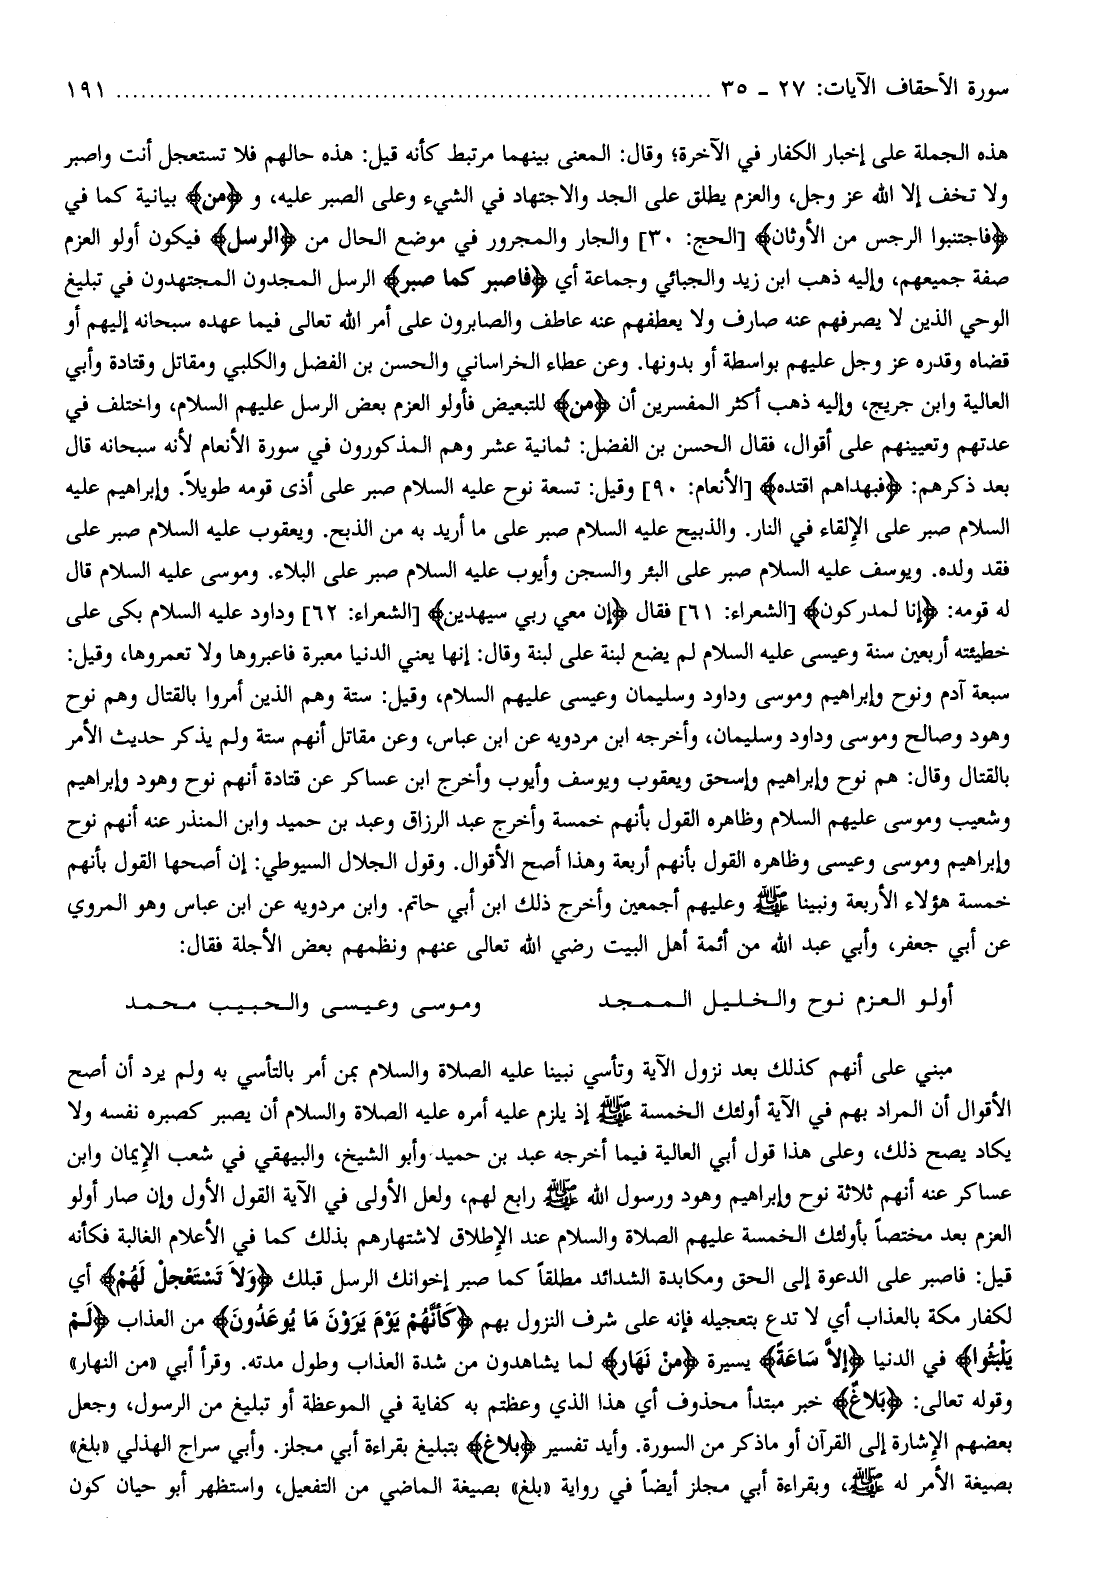 سورة الأحقاف الآيات: ٢٧ ـ ٣٥ ........................................................................ ١٩١
هذه الجملة على إخبار الكفار في الآخرة؛ وقال: المعنى بينهما مرتبط كأنه قيل: هذه حالهم فلا تستعجل أنت واصبر
ولا تخف إلا الله عز وجل، والعزم يطلق على الجد والاجتهاد في الشيء وعلى الصبر عليه، و ﴿من﴾ بيانية كما في
﴿فاجتنبوا الرجس من الأوثان﴾ [الحج: ٣٠] والجار والمجرور في موضع الحال من ﴿الرسل﴾ فيكون أولو العزم
صفة جميعهم، وإليه ذهب ابن زيد والجبائي وجماعة أي ﴿فاصبر كما صبر﴾ الرسل المجدون المجتهدون في تبليغ
الوحي الذين لا يصرفهم عنه صارف ولا يعطفهم عنه عاطف والصابرون على أمر الله تعالى فيما عهده سبحانه إليهم أو
قضاه وقدره عز وجل عليهم بواسطة أو بدونها. وعن عطاء الخراساني والحسن بن الفضل والكلبي ومقاتل وقتادة وأبي
العالية وابن جريج، وإليه ذهب أكثر المفسرين أن ﴿من﴾ للتبعيض فأولو العزم بعض الرسل عليهم السلام، واختلف في
عدتهم وتعيينهم على أقوال، فقال الحسن بن الفضل: ثمانية عشر وهم المذكورون في سورة الأنعام لأنه سبحانه قال
بعد ذكرهم: ﴿فبهداهم اقتده﴾ [الأنعام: ٩٠] وقيل: تسعة نوح عليه السلام صبر على أذى قومه طويلاً. وإبراهيم عليه
السلام صبر على الإلقاء في النار. والذبيح عليه السلام صبر على ما أريد به من الذبح. ويعقوب عليه السلام صبر على
فقد ولده. ويوسف عليه السلام صبر على البئر والسجن وأيوب عليه السلام صبر على البلاء. وموسى عليه السلام قال
له قومه: ﴿إنا لمدركون﴾ [الشعراء: ٦١] فقال ﴿إن معي ربي سيهدين﴾ [الشعراء: ٦٢] وداود عليه السلام بكى على
خطيئته أربعين سنة وعيسى عليه السلام لم يضع لبنة على لبنة وقال: إنها يعني الدنيا معبرة فاعبروها ولا تعمروها، وقيل:
سبعة آدم ونوح وإبراهيم وموسى وداود وسليمان وعيسى عليهم السلام، وقيل: ستة وهم الذين أمروا بالقتال وهم نوح
وهود وصالح وموسى وداود وسليمان، وأخرجه ابن مردويه عن ابن عباس، وعن مقاتل أنهم ستة ولم يذكر حديث الأمر
بالقتال وقال: هم نوح وإبراهيم وإسحق ويعقوب ويوسف وأيوب وأخرج ابن عساكر عن قتادة أنهم نوح وهود وإبراهيم
وشعيب وموسى عليهم السلام وظاهره القول بأنهم خمسة وأخرج عبد الرزاق وعبد بن حميد وابن المنذر عنه أنهم نوح
وإبراهيم وموسى وعيسى وظاهره القول بأنهم أربعة وهذا أصح الأقوال. وقول الجلال السيوطي: إن أصحها القول بأنهم
خمسة هؤلاء الأربعة ونبينا ﷺ وعليهم أجمعين وأخرج ذلك ابن أبي حاتم. وابن مردويه عن ابن عباس وهو المروي
عن أبي جعفر، وأبي عبد الله من أئمة أهل البيت رضي الله تعالى عنهم ونظمهم بعض الأجلة فقال:
أولو العزم نوح والخليل الممجد وموسى وعيسى والحبيب محمد
مبني على أنهم كذلك بعد نزول الآية وتأسي نبينا عليه الصلاة والسلام بمن أمر بالتأسي به ولم يرد أن أصح
الأقوال أن المراد بهم في الآية أولئك الخمسة ﷺ إذ يلزم عليه أمره عليه الصلاة والسلام أن يصبر كصبره نفسه ولا
يكاد يصح ذلك، وعلى هذا قول أبي العالية فيما أخرجه عبد بن حميد وأبو الشيخ، والبيهقي في شعب الإيمان وابن
عساكر عنه أنهم ثلاثة نوح وإبراهيم وهود ورسول الله ﷺ رابع لهم، ولعل الأولى في الآية القول الأول وإن صار أولو
العزم بعد مختصاً بأولئك الخمسة عليهم الصلاة والسلام عند الإطلاق لاشتهارهم بذلك كما في الأعلام الغالبة فكأنه
قيل: فاصبر على الدعوة إلى الحق ومكابدة الشدائد مطلقاً كما صبر إخوانك الرسل قبلك ﴿وَلاَ تَسْتَعْجلْ لَهُمْ﴾ أي
لكفار مكة بالعذاب أي لا تدع بتعجيله فإنه على شرف النزول بهم ﴿كَأَنَّهُمْ يَوْمَ يَرَوْنَ مَا يُوعَدُونَ﴾ من العذاب ﴿لَمْ
يَلْبَثُوا﴾ في الدنيا ﴿إلاَّ سَاعَةً﴾ يسيرة ﴿مِنْ نَهَار﴾ لما يشاهدون من شدة العذاب وطول مدته. وقرأ أبي «من النهار»
وقوله تعالى: ﴿بَلاغٌ﴾ خبر مبتدأ محذوف أي هذا الذي وعظتم به كفاية في الموعظة أو تبليغ من الرسول، وجعل
بعضهم الإشارة إلى القرآن أو ماذكر من السورة. وأيد تفسير ﴿بلاغ﴾ بتبليغ بقراءة أبي مجلز. وأبي سراج الهذلي «بلغ»
بصيغة الأمر له ﷺ، وبقراءة أبي مجلز أيضاً في رواية «بلغ» بصيغة الماضي من التفعيل، واستظهر أبو حيان كون